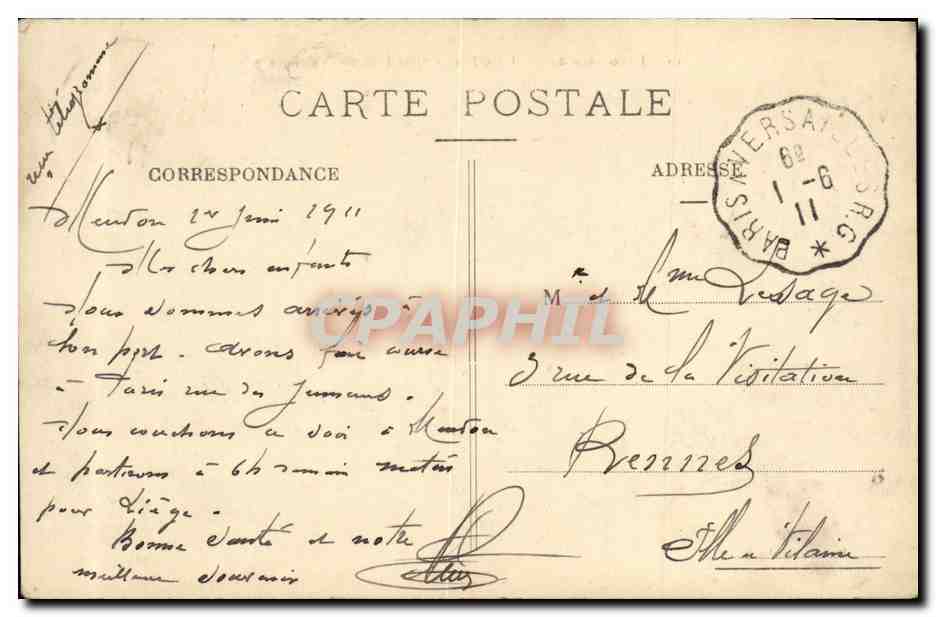 CARTE POSTALE
CORRESPONDANCE
ADRESSE
PARIS A VERSAILLES R.G *
6e
1 -6
11
rien
télégramme
Meudon 1er Juin 1911
Mes chers enfants
Nous sommes arrivés à
bon port. avons fait course
à Paris rue des Jeuneurs.
Nous couchons ce soir à Meudon
et partirons à 6h demain matin
pour Liège.
Bonne santé et notre
meilleur souvenir
Mr et Mme Lesage
3 rue de la Visitation
Rennes
Ille et Vilaine
CPAPHIL